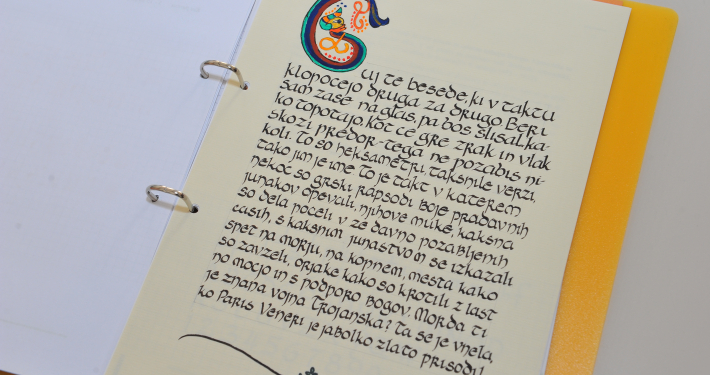 Čuj te besede, ki v taktu
klopočejo druga za drugo Beri
sam zase na glas, pa boš slišal, ka-
ko topotajo, kot če gre zrak in vlak
skozi predor - tega ne pozabiš ni-
koli. To so heksametri, takšnile verzi,
tako jim je ime. To je takt v katerem
nekoč so grški rapsodi boje pradavnih
junakov opevali, njihove muke, kakšna
so dela počeli v že davno pozabljenih
časih, s kakšnim junaštvom se izkazali
spet na morju, na kopnem, mesta kako
so zavzeli, orjake kako so krotili z last
no močjo in s podporo bogov. Morda ti
je znana vojna Trojanska? Ta se je vnela,
ko Paris Veneri je jabolko zlato prisodil